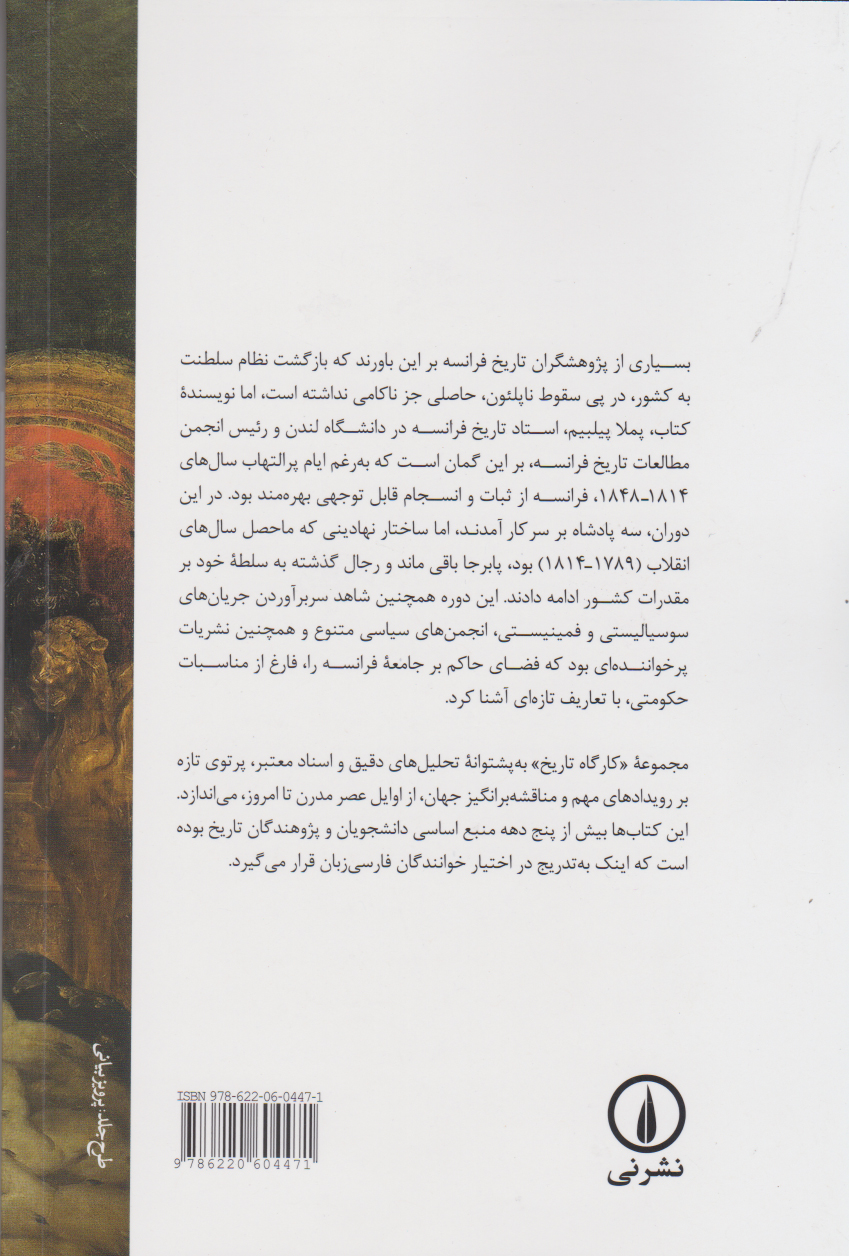 بسیاری از پژوهشگران تاریخ فرانسه بر این باورند که بازگشت نظام سلطنت
به کشور، در پی سقوط ناپلئون، حاصلی جز ناکامی نداشته است، اما نویسندهٔ
کتاب، پملا پیلبیم، استاد تاریخ فرانسه در دانشگاه لندن و رئیس انجمن
مطالعات تاریخ فرانسه، بر این گمان است که به‌رغم ایام پرالتهاب سال‌های
۱۸۱۴ـ۱۸۴۸، فرانسه از ثبات و انسجام قابل توجهی بهره‌مند بود. در این
دوران، سه پادشاه بر سر کار آمدند، اما ساختار نهادینی که ماحصل سال‌های
انقلاب (۱۷۸۹ـ۱۸۱۴) بود، پابرجا باقی ماند و رجال گذشته به سلطهٔ خود بر
مقدرات کشور ادامه دادند. این دوره همچنین شاهد سربرآوردن جریان‌های
سوسیالیستی و فمینیستی، انجمن‌های سیاسی متنوع و همچنین نشریات
پرخواننده‌ای بود که فضای حاکم بر جامعهٔ فرانسه را، فارغ از مناسبات
حکومتی، با تعاریف تازه‌ای آشنا کرد.
مجموعهٔ «کارگاه تاریخ» به‌پشتوانهٔ تحلیل‌های دقیق و اسناد معتبر، پرتوی تازه
بر رویدادهای مهم و مناقشه‌برانگیز جهان، از اوایل عصر مدرن تا امروز، می‌اندازد.
این کتاب‌ها بیش از پنج دهه منبع اساسی دانشجویان و پژوهندگان تاریخ بوده
است که اینک به‌تدریج در اختیار خوانندگان فارسی‌زبان قرار می‌گیرد.
طرح جلد: پرویز بیانی
ISBN 978-622-06-0447-1
9 786220 604471
نشر نی